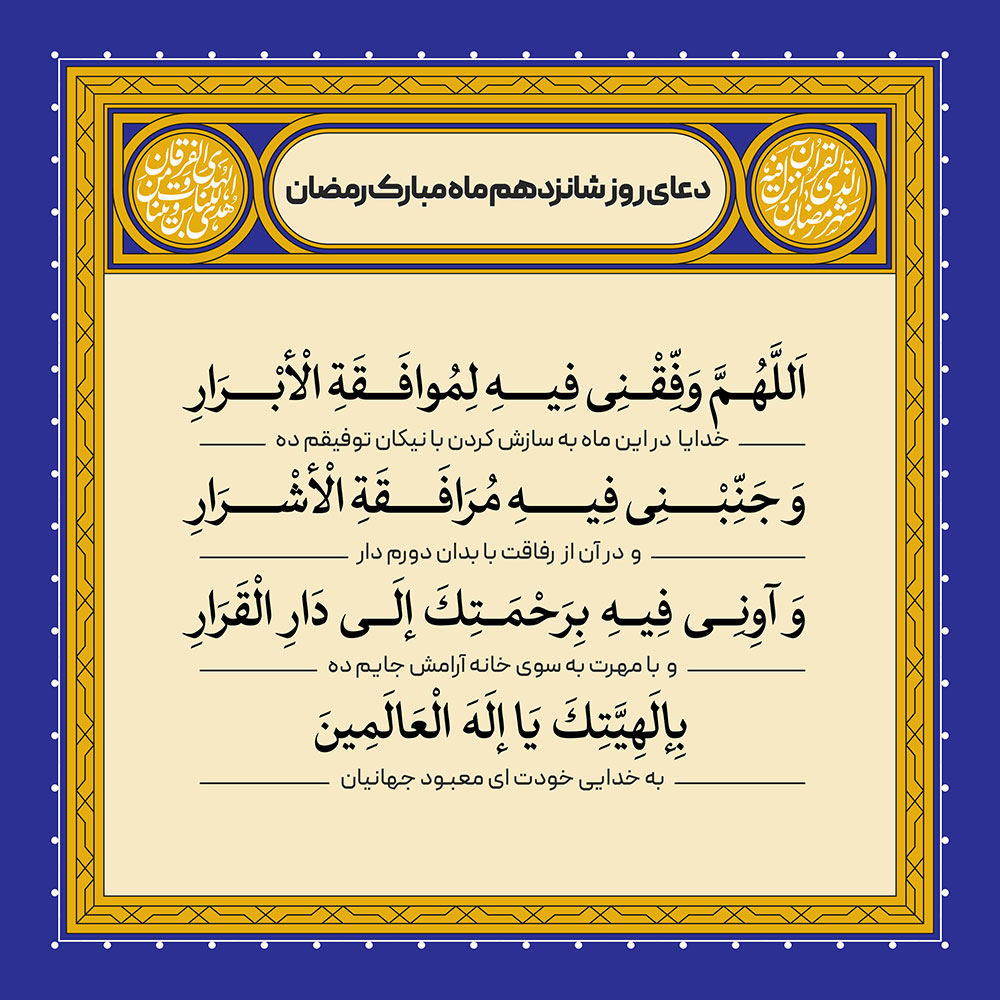 شهر رمضان الذی انزل فیه القرآن
دعای روز شانزدهم ماه مبارک رمضان
هدی للناس و بینات من الهدی و الفرقان
اَللَّهُمَّ وَفِّقْنِی فِیهِ لِمُوافَقَةِ الْأَبْرَارِ
خدایا در این ماه به سازش کردن با نیکان توفیقم ده
وَ جَنِّبْنِی فِیهِ مُرَافَقَةِ الْأَشْرَارِ
و در آن از رفاقت با بدان دورم دار
وَ آوِنِی فِیهِ بِرَحْمَتِكَ إِلَی دَارِ الْقَرَارِ
و با مهرت به سوی خانه آرامش جایم ده
بِإِلَهِیَّتِكَ یَا إِلَهَ الْعَالَمِینَ
به خدایی خودت ای معبود جهانیان